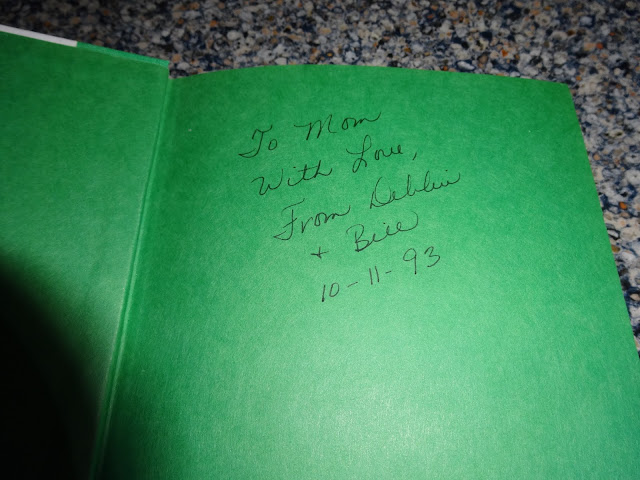 To Mom
With Love,
From Debbie
+ Bill
10-11-93